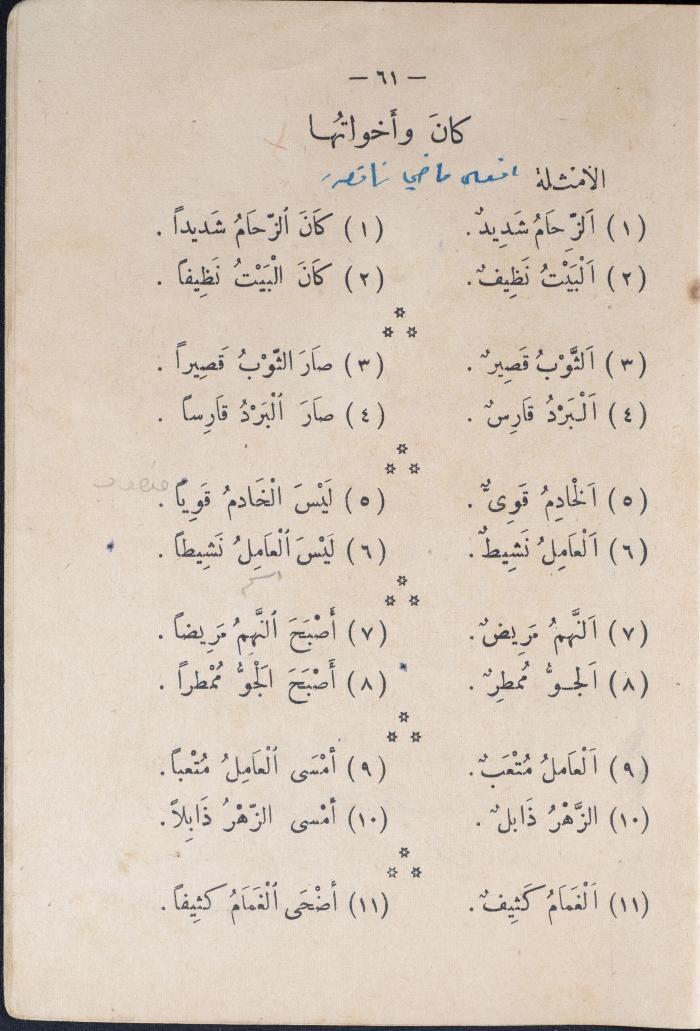 — ٦١ —
كانَ وأَخواتُها
الأمْثلة افعال ماضي ناقصه
(١) اَلزِّحَامُ شَدِيدٌ. (١) كَانَ ٱلزِّحَامُ شَديداً.
(٢) اَلْبَيْتُ نَظِيفٌ. (٢) كَانَ الْبَيْتُ نَظِيفاً.
(٣) اَلثَّوْبُ قَصِيرٌ. (٣) صَارَ الثَّوْبُ قَصِيراً.
(٤) اَلْبَرْدُ قَارِسٌ. (٤) صَارَ ٱلْبَرْدُ قَارِساً.
(٥) اَلْخَادِمُ قَوِىٌّ. (٥) لَيْسَ الْخَادمُ قَوِيًّا.
(٦) اَلْعَامِلُ نَشِيطٌ. (٦) لَيْسَ ٱلْعَامِلُ نَشِيطاً.
اسم
(٧) اَلنَّهِمُ مَرِيضٌ. (٧) أَصْبَحَ ٱلنَّهِمُ مَرِيضاً.
(٨) اَلْجـوُّ مُمطِرٌ. (٨) أَصْبَحَ الْجَوُّ مُمْطراً.
(٩) اَلْعَاملُ مُتْعَبٌ. (٩) أمْسَى ٱلْعَامِلُ مُتْعباً.
(١٠) الزَّهْرُ ذَابلٌ. (١٠) أمْسى الزَّهْرُ ذَابِلاً.
(١١) اَلْغَمَامُ كَثِيفٌ. (١١) أضْحَى ٱلْغَمَامُ كثِيفاً.